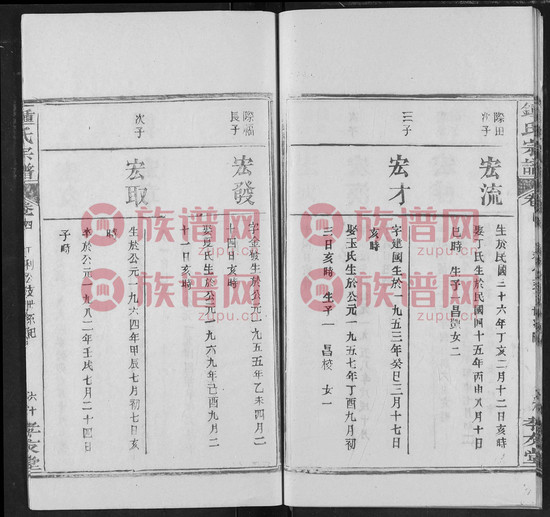 鍾氏宗譜
孝友堂
際田
次子
宏流
生於民國三十六年丁亥二月十二日亥時
娶丁氏生於民國四十五年丙申八月十日
巳時 生子一昌 女二
三子
宏才
字建國生於一九五三年癸巳三月十七日
亥時
娶玉氏生於公元一九五七年丁酉九月初
三日亥時 生子一昌校 女一
際福
長子
宏發
字金 生於公元一九五五年乙未四月二
十四日亥時
娶夏氏生於公元一九六九年己酉九月二
十二日亥時
次子
宏取
生於公元一九六四年甲辰七月初七日亥
時
卒於公元一九八二年壬戌七月二十四日
子時
鍾氏宗譜
卷四
六十
孝友堂
族谱网
zupu.cn